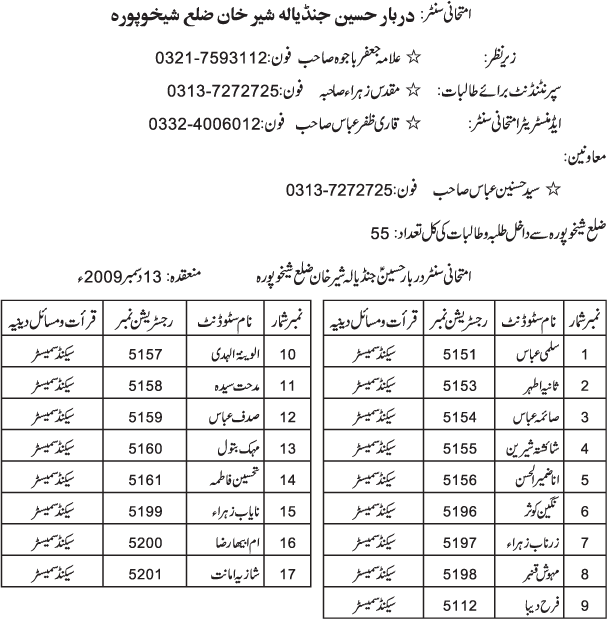 امتحانی سنٹر: دربار حسین جنڈیالہ شیر خان ضلع شیخوپورہ
زیر نظر: ☆ علامہ جعفر باجوہ صاحب فون:0321-7593112
سپرنٹنڈنٹ برائے طالبات: ☆ مقدس زہراء صاحبہ فون:0313-7272725
ایڈمنسٹریٹر امتحانی سنٹر: ☆ قاری ظفر عباس صاحب فون:0332-4006012
معاونین:
☆ سید حسنین عباس صاحب فون:0313-7272725
ضلع شیخوپورہ سے داخل طلبہ و طالبات کی کل تعداد: 55
امتحانی سنٹر دربار حسینؑ جنڈیالہ شیر خان ضلع شیخوپورہ منعقدہ: 13 دسمبر 2009ء
نمبر شمار نام سٹوڈنٹ رجسٹریشن نمبر قرأت و مسائل دینیہ
1 سلمی عباس 5151 سیکنڈ سمیسٹر
2 ثانیہ اطہر 5153 سیکنڈ سمیسٹر
3 صائمہ عباس 5154 سیکنڈ سمیسٹر
4 شائستہ شیرین 5155 سیکنڈ سمیسٹر
5 انا ضمیر الحسن 5156 سیکنڈ سمیسٹر
6 نگین کوثر 5196 سیکنڈ سمیسٹر
7 زرناب زہراء 5197 سیکنڈ سمیسٹر
8 مہوش قنبر 5198 سیکنڈ سمیسٹر
9 فرح دیبا 5112 سیکنڈ سمیسٹر
نمبر شمار نام سٹوڈنٹ رجسٹریشن نمبر قرأت و مسائل دینیہ
10 الوینۃ الہدی 5157 سیکنڈ سمیسٹر
11 مدحت سیدہ 5158 سیکنڈ سمیسٹر
12 صدف عباس 5159 سیکنڈ سمیسٹر
13 مہک بتول 5160 سیکنڈ سمیسٹر
14 تحسین فاطمہ 5161 سیکنڈ سمیسٹر
15 نایاب زہراء 5199 سیکنڈ سمیسٹر
16 ام ابیھا رضا 5200 سیکنڈ سمیسٹر
17 شازیہ امانت 5201 سیکنڈ سمیسٹر